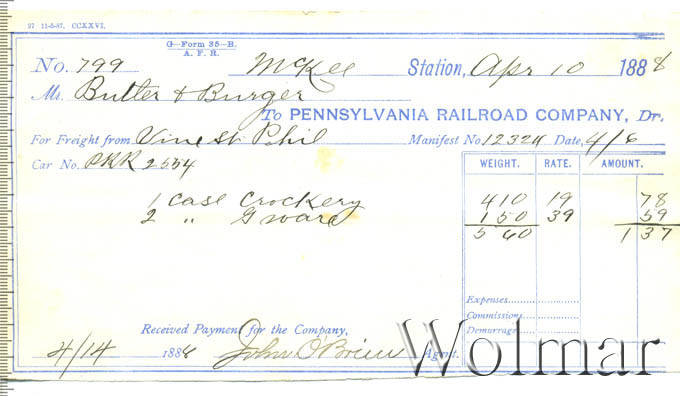 97 11-5-87. CCXXVI.
G—Form 35—B.
A. F. R.
No. 799 McKee Station, Apr 10 1888
Mr. Butler & Burger
To PENNSYLVANIA RAILROAD COMPANY, Dr.
For Freight from Vine St. Phil Manifest No. 1232 Date, 4/6
Car No. PRR 2554
WEIGHT. RATE. AMOUNT.
1 Case Crockery 410 19 78
2 " G ware 150 39 59
560 1 37
Expenses
Commissions
Demurrage
Received Payment for the Company,
4/14 1888 John O'Brien Agent.
Wolmar